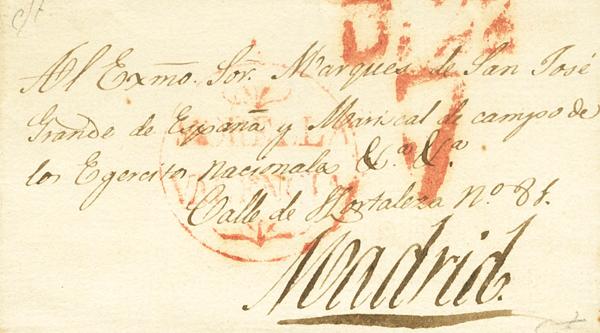 Al Exmo. Sor. Marques de San José
Grande de España y Mariscal de campo de
los Egercito nacionala &.a &.a
Calle de Hortaleza No. 81.
Madrid.